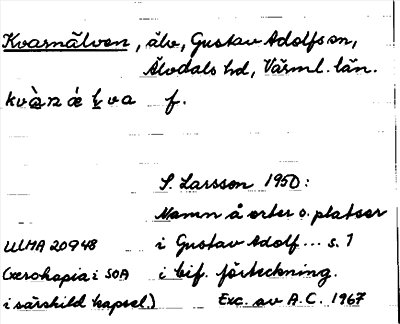 Kvarnälven, älv, Gustav Adolfs sn,
Älvdals hd, Värml. län.
kvà̀rnǽlva f.
S. Larsson 1950:
Namn å orter o. platser
ULMA 20948 i Gustav Adolf... s. 1
(xerokopia i SOA i bif. förteckning.
i särskild kapsel.) Exc. av A.C. 1967